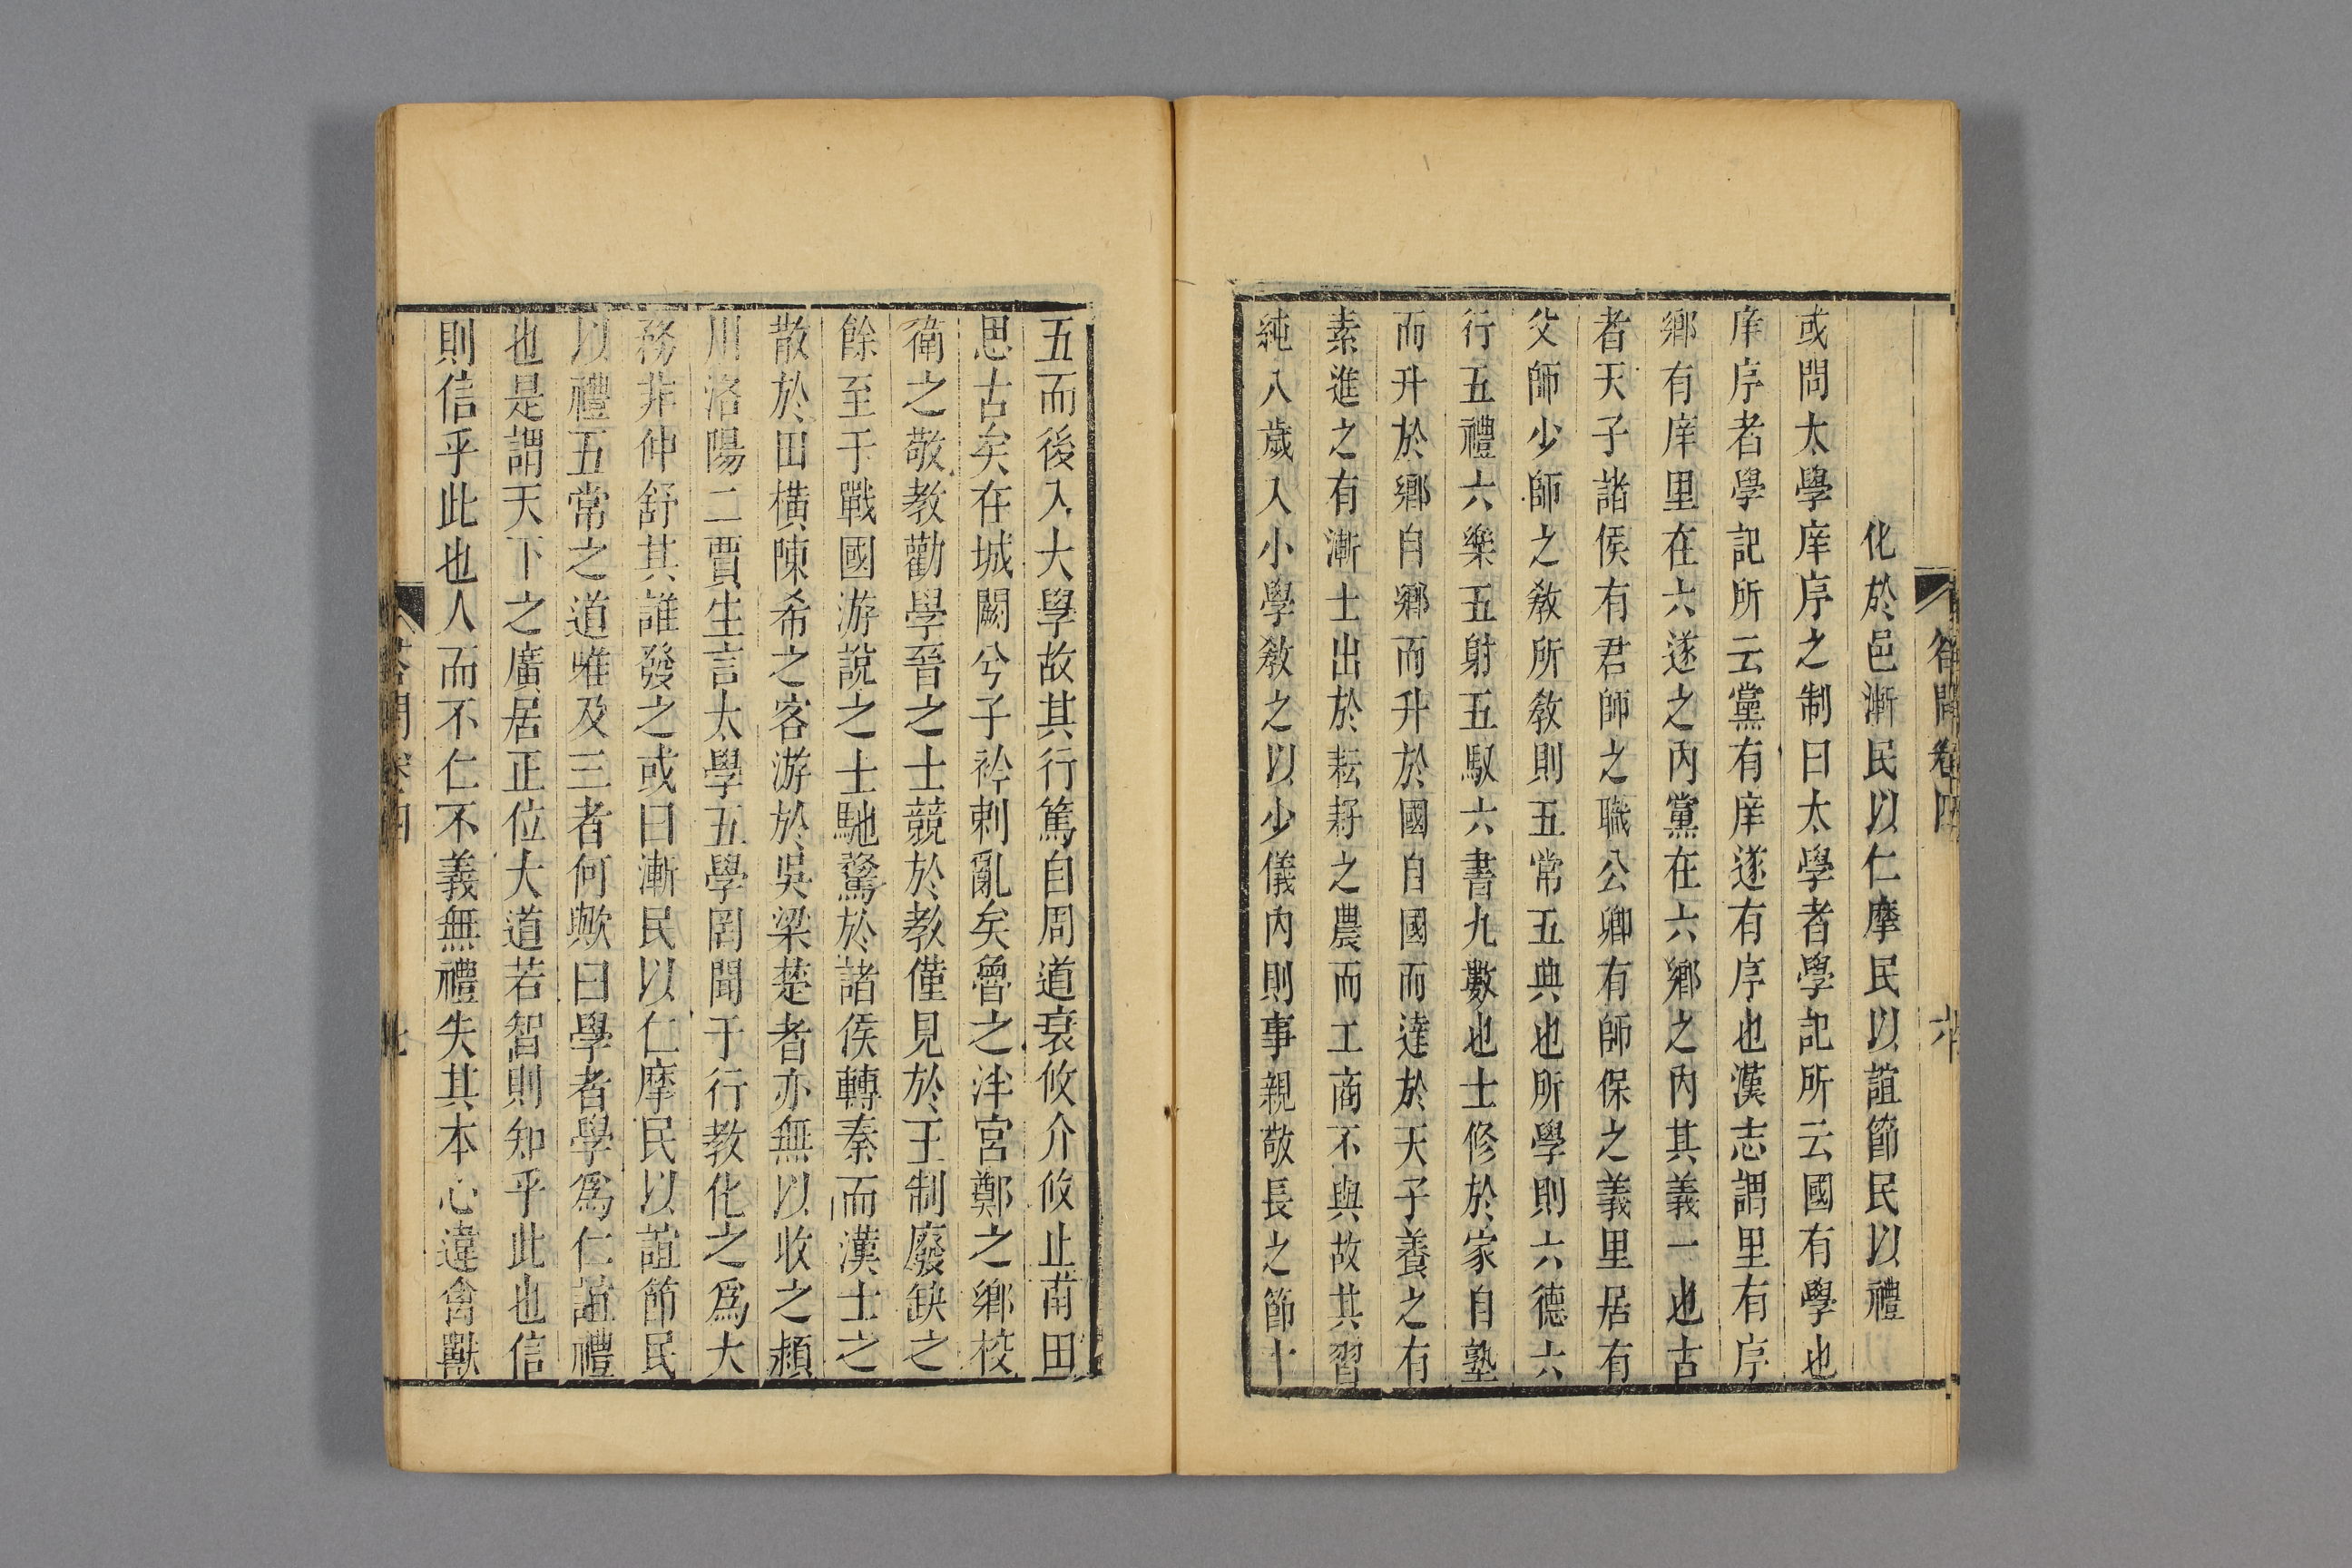 答問卷四
化於邑漸民以仁摩民以誼節民以禮
或問太學庠序之制曰太學者學記所云國有學也
庠序者學記所云黨有庠遂有序也漢志謂里有序
鄉有庠里在六遂之內黨在六鄉之內其義一也古
者天子諸侯有君師之職公卿有師保之義里居有
父師少師之敎所敎則五常五典也所學則六德六
行五禮六樂五射五馭六書九數也士修於家自塾
而升於鄉自鄉而升於國自國而達於天子養之有
素進之有漸士出於耘耔之農而工商不與故其習
純八歲入小學敎之以少儀內則事親敬長之節十
五而後入大學故其行篤自周道衰攸介攸止甫田
思古矣在城闕兮子衿刺亂矣魯之泮宮鄭之鄉校
衛之敬教勸學晉之士競於教僅見於王制廢缺之
餘至于戰國游說之士馳騖於諸侯轉秦而漢士之
散於田橫陳希之客游於吳梁楚者亦無以收之潁
川洛陽二賈生言太學五學罔聞于行教化之爲大
務非仲舒其誰發之或曰漸民以仁摩民以誼節民
以禮五常之道唯及三者何歟曰學者學爲仁誼禮
也是謂天下之廣居正位大道若智則知乎此也信
則信乎此也人而不仁不義無禮失其本心違禽獸